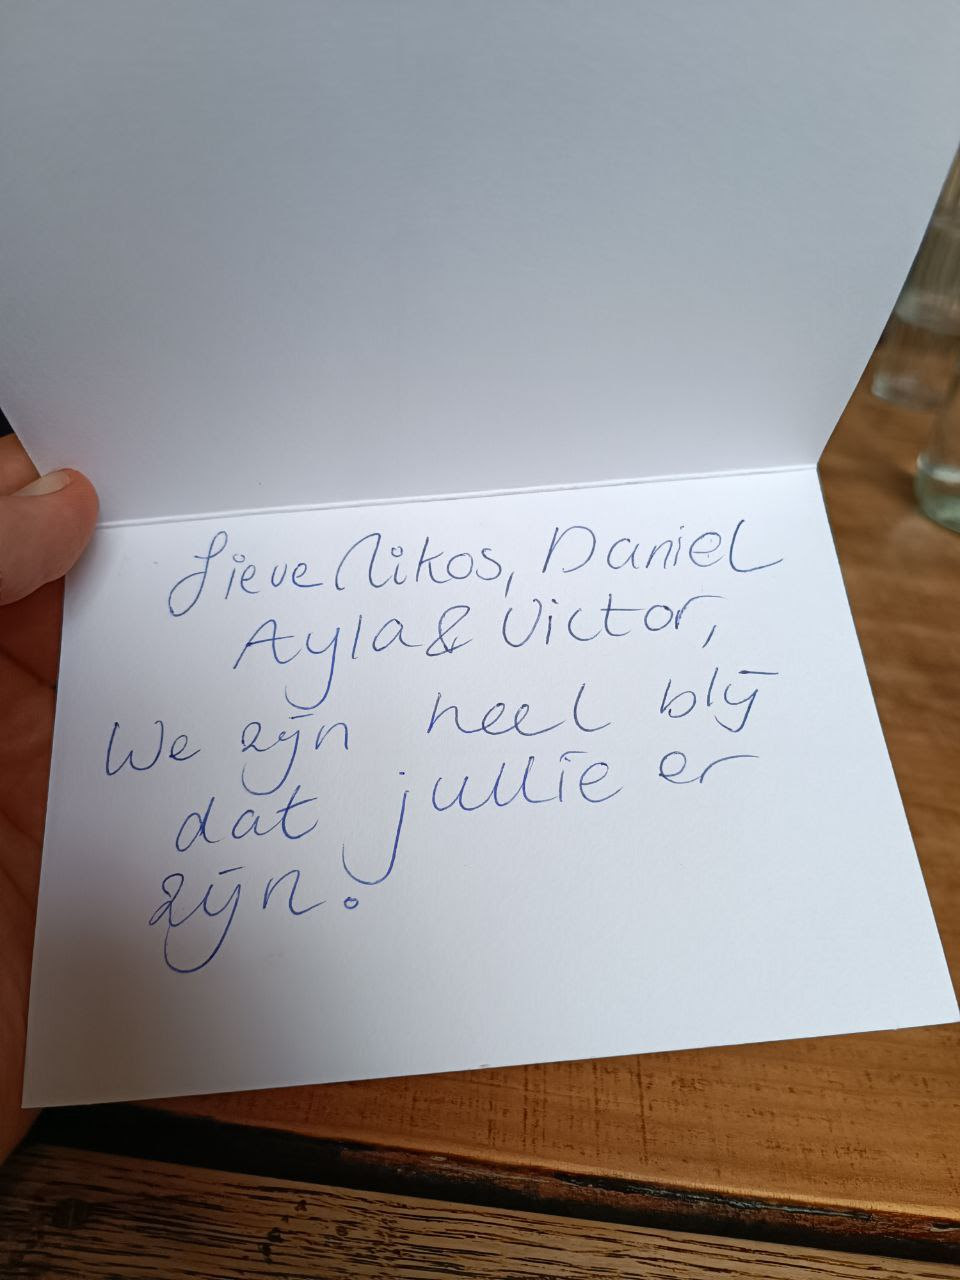 Lieve Nikos, Daniel
Ayla & Victor,
We zijn heel blij
dat jullie er
zijn.